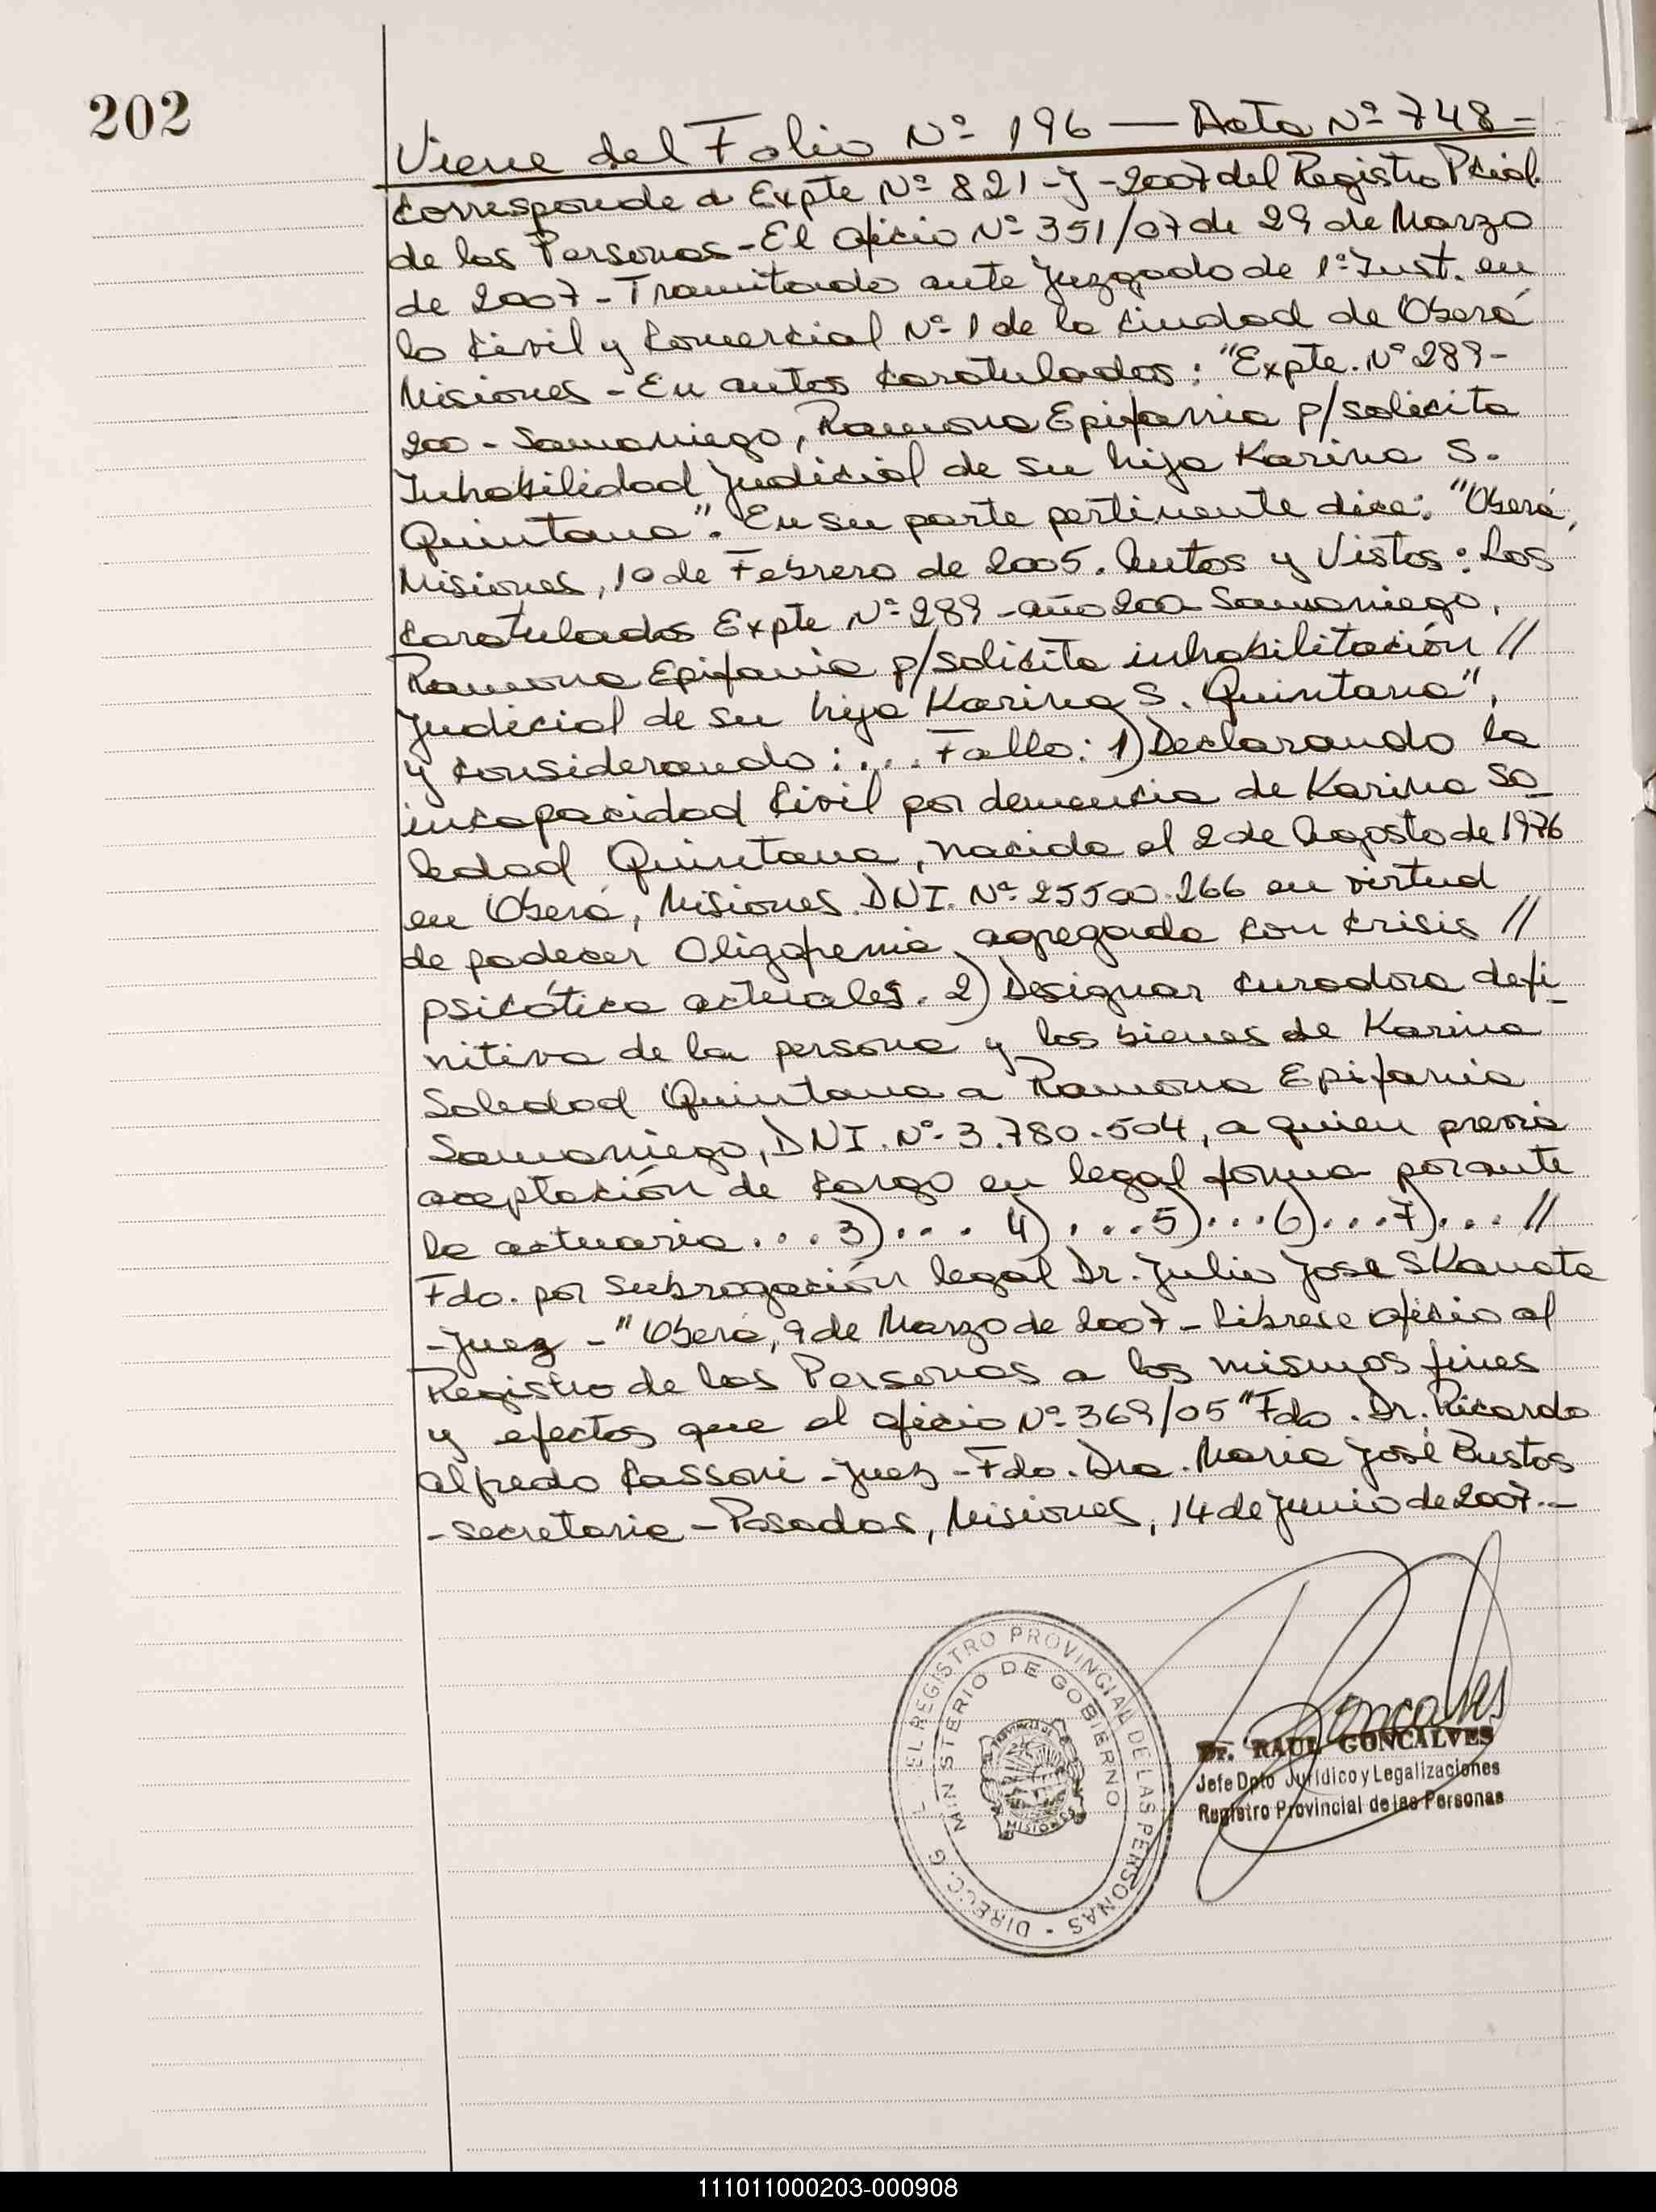 202
Viene del Folio Nº 196 — Acta Nº 748 -
Corresponde a Expte Nº 821 - J - 2007 del Registro Pcial.
de las Personas - El oficio Nº 351/07 de 29 de Marzo
de 2007 - Tramitado ante Juzgado de 1º Inst. en
lo Civil y Comercial Nº 1 de la Ciudad de Oberá
Misiones - En autos caratulados: "Expte. Nº 289 -
200 - Samaniego, Ramona Epifania p/solicita
Inhabilidad Judicial de su hija Karina S.
Quintana". En su parte pertinente dice: "Oberá,
Misiones, 10 de Febrero de 2005. Autos y Vistos: Los
caratulados Expte Nº 289 - año 200 Samaniego,
Ramona Epifania p/solicita inhabilitación //
Judicial de su hija Karina S. Quintana",
y considerando: .... Fallo: 1) Declarando la
incapacidad Civil por demencia de Karina So_
ledad Quintana, nacida el 2 de Agosto de 1976
en Oberá, Misiones. DNI. Nº 25500.266 en virtud
de padecer Oligofrenia agregada con crisis //
psicótica actuales. 2) Designar curadora defi_
nitiva de la persona y los bienes de Karina
Soledad Quintana a Ramona Epifania
Samaniego, DNI. Nº 3.780.504, a quien previa
aceptación de cargo en legal forma por ante
la actuaria ... 3) ... 4) ... 5) ... 6) ... 7) ... //
Fdo. por Subrogación legal Dr. Julio Jose SKanata
- Juez - "Oberá, 9 de Marzo de 2007 - Librese oficio al
Registro de las Personas a los mismos fines
y efectos que el oficio Nº 369/05 "Fdo. Dr. Ricardo
Alfredo Cassoni - Juez - Fdo. Dra. Maria José Bustos
- secretaria - Posadas, Misiones, 14 de junio de 2007.-
DIRECC. G L. EL REGISTRO PROVINCIAL DE LAS PERSONAS -
MINISTERIO DE GOBIERNO
PROVINCIA DE
MISIONES
Goncalves
Dr. RAUL GONCALVES
Jefe Dpto Jurídico y Legalizaciones
Registro Provincial de las Personas
111011000203-000908